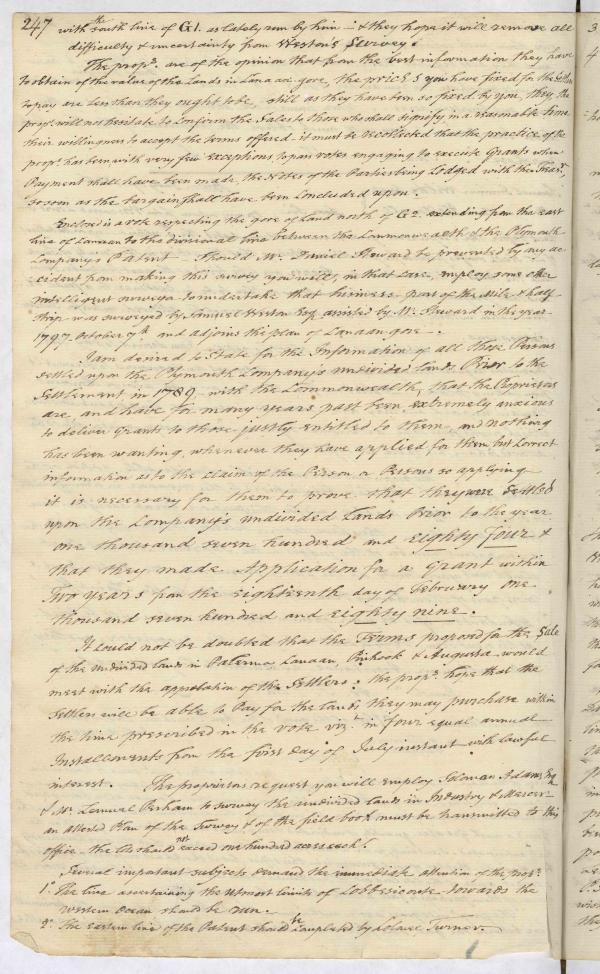 247 with the south line of G1. as lately run by him — & they hope it will remove all
difficulty & uncertainty from Weston's Survey.
The propṛs. are of the opinion that from the best information they have
to obtain of the value of the Lands in Canaan gore, the prices you have fixed for the Settlers
to pay are less than they ought to be, still as they have been so fixed by you, they the
propṛs. will not hesitate to conform the Sales to those who shall signify in a reasonable time
their willingness to accept the terms offered. it must be recollected that the practice of the
propṛs. has been with very few exceptions to pass votes engaging to execute Grants when
Payment shall have been made, the Notes of the Parties being Lodged with the Treasr.
so soon as the bargain shall have been concluded upon.
Enclosed is a vote respecting the gore of Land north of G2. extending from the east
line of Canaan to the divisional line between the Commonwealth & the Plymouth
Company's Patent. Should Mr. Daniel Steward be prevented by any ac-
cident from making this survey you will, in that case, employ some other
intelligent surveyor to undertake that business. part of the Mile & half
strip was surveyed by Samuel Weston Esqr. assisted by Mr. Steward in the year
1797. October 7th and adjoins the plan of Canaan gore.
I am desired to State for the Information of all those Persons
settled upon the Plymouth Company's undivided Lands Prior to the
Settlement in 1789 with the Commonwealth, that the Proprietors
are, and have for many years past been extremely anxious
to deliver Grants to those justly entitled to them, and nothing
has been wanting, whenever they have applied for them but correct
information as to the claim of the Person or Persons so applying
it is necessary for them to prove that they were Settled
upon the Company's undivided Lands Prior to the year
one thousand seven hundred and eighty four &
that they made Application for a Grant within
Two years from the eighteenth day of February one
thousand seven hundred and eighty nine.
It could not be doubted that the Terms proposed for the Sale
of the undivided lands in Palermo, Canaan, Pinhook & Augusta would
meet with the approbation of the Settlers: the propṛs. hope that the
Settlers will be able to Pay for the Lands they may purchase within
the time prescribed in the vote vizt. in four equal annual
Installments from the first day of July instant with lawful
interest. The proprietors request you will employ Solomon Adams Esq
& Mr. Lemuel Perham to survey the undivided lands in Industry & Mercer
an attested Plan of the Survey & of the field book must be transmitted to this
office — the lots should not exceed one hundred acres each.
Several important subjects demand the immediate attention of the propṛs.
1º. The line ascertaining the utmost limits of Cobbiseconte towards the
western Ocean should be run.
2º. The eastern line of the Patent should be completed by Turner.